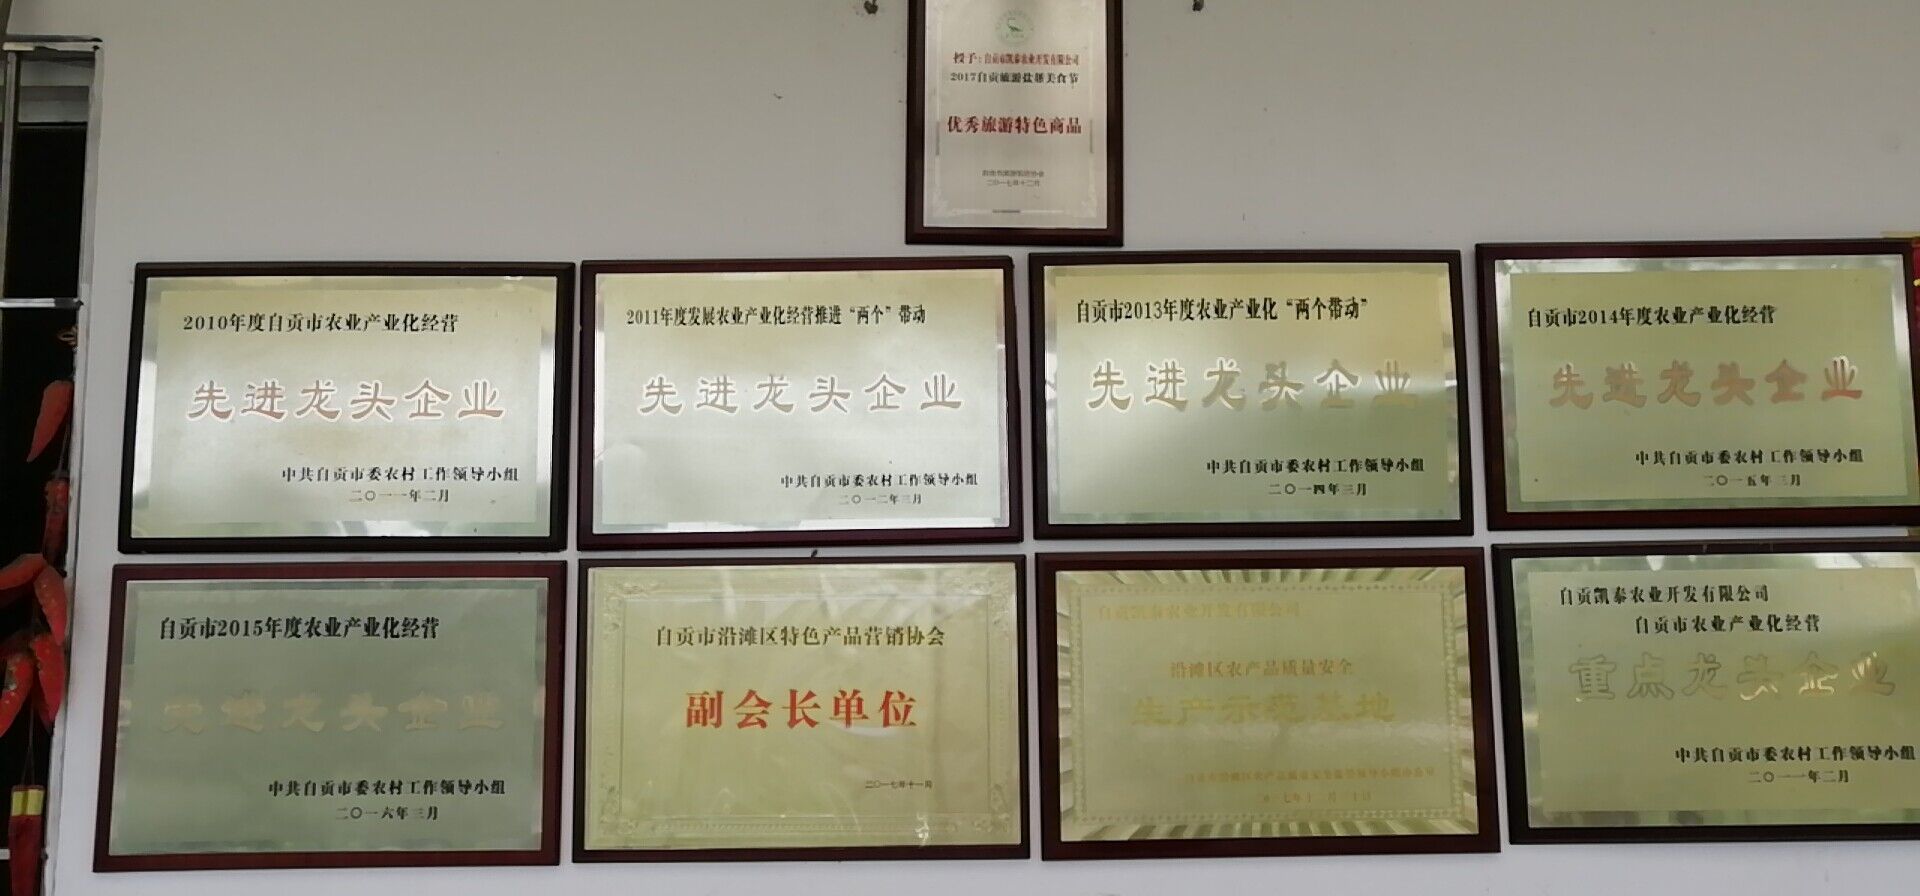 授予：自贡市凯泰农业开发有限公司
2017自贡旅游盐帮美食节
优秀旅游特色商品
二〇一七年十二月
2010年度自贡市农业产业化经营
先进龙头企业
中共自贡市委农村工作领导小组
二〇一一年二月
2011年度发展农业产业化经营推进“两个”带动
先进龙头企业
中共自贡市委农村工作领导小组
二〇一二年三月
自贡市2013年度农业产业化“两个带动”
先进龙头企业
中共自贡市委农村工作领导小组
二〇一四年三月
自贡市2014年度农业产业化经营
先进龙头企业
中共自贡市委农村工作领导小组
二〇一五年三月
自贡市2015年度农业产业化经营
先进龙头企业
中共自贡市委农村工作领导小组
二〇一六年三月
自贡市沿滩区特色产品营销协会
副会长单位
二〇一七年十一月
自贡凯泰农业开发有限公司
沿滩区农产品质量安全
生产示范基地
自贡凯泰农业开发有限公司
自贡市农业产业化经营
重点龙头企业
中共自贡市委农村工作领导小组
二〇一一年二月